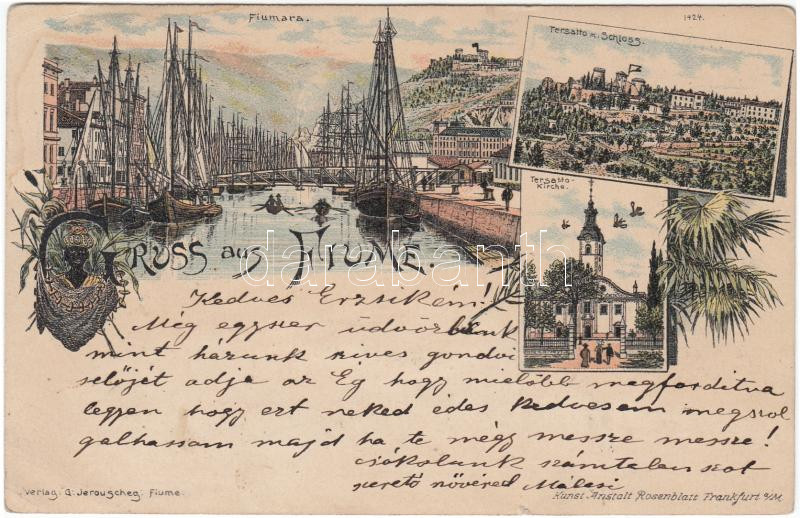 Fiumara.
1424.
Tersatto m. Schloss.
Tersatto-
Kirche.
Gruss aus Fiume.
darabanth
Kedves Erzsikém!
Még egyszer üdvözlünk
mint házunk szives gondvi
selőjét adja az Ég hogy mielőbb megforditva
legyen hogy ezt neked édes kedvesem megszol
gálhassam majd ha te mégy messze messze!
csókolunk számtalanszor
szerető nővéred
Verlag G. Jerouscheg. Fiume.
Kunst-Anstalt Rosenblatt Frankfurt a/M.